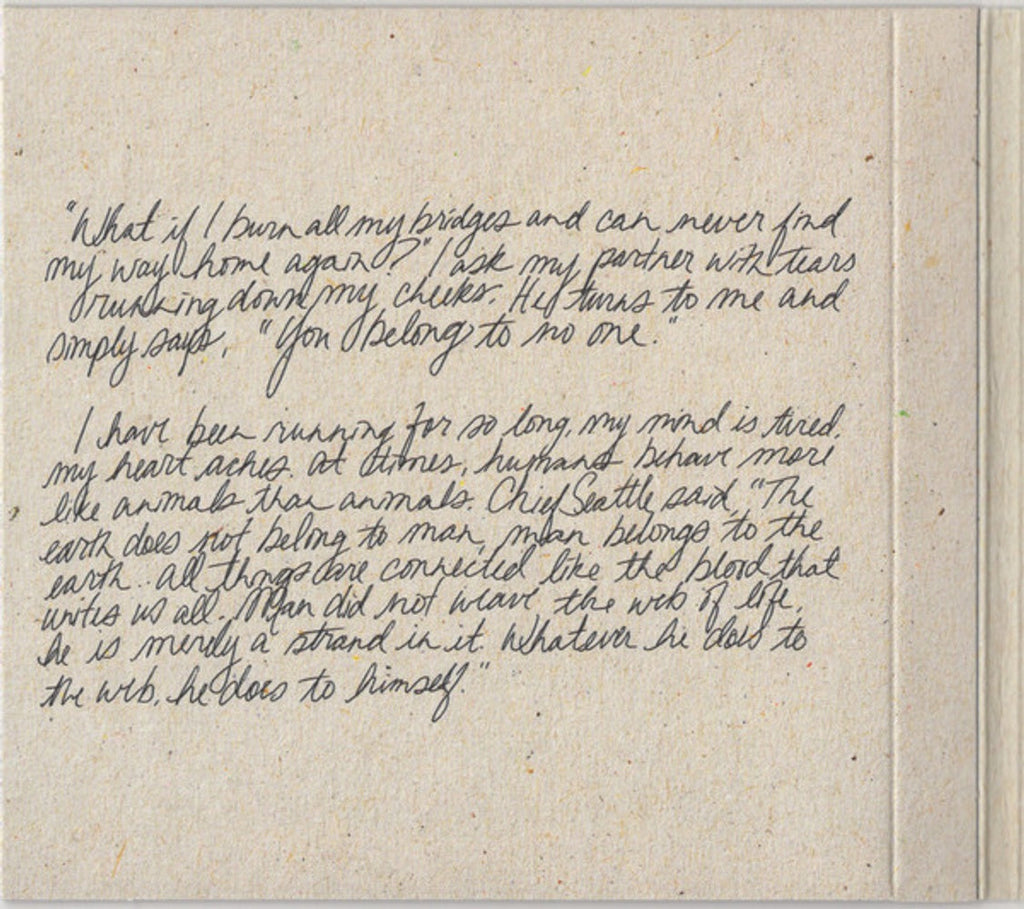 "What if I burn all my bridges and can never find
my way home again?" I ask my partner with tears
running down my cheeks. He turns to me and
simply says, "You belong to no one."
I have been running for so long, my mind is tired,
my heart aches. At times, humans behave more
like animals than animals. Chief Seattle said, "The
earth does not belong to man, man belongs to the
earth.. All things are connected like the blood that
unites us all. Man did not weave the web of life,
he is merely a strand in it. Whatever he does to
the web, he does to himself."